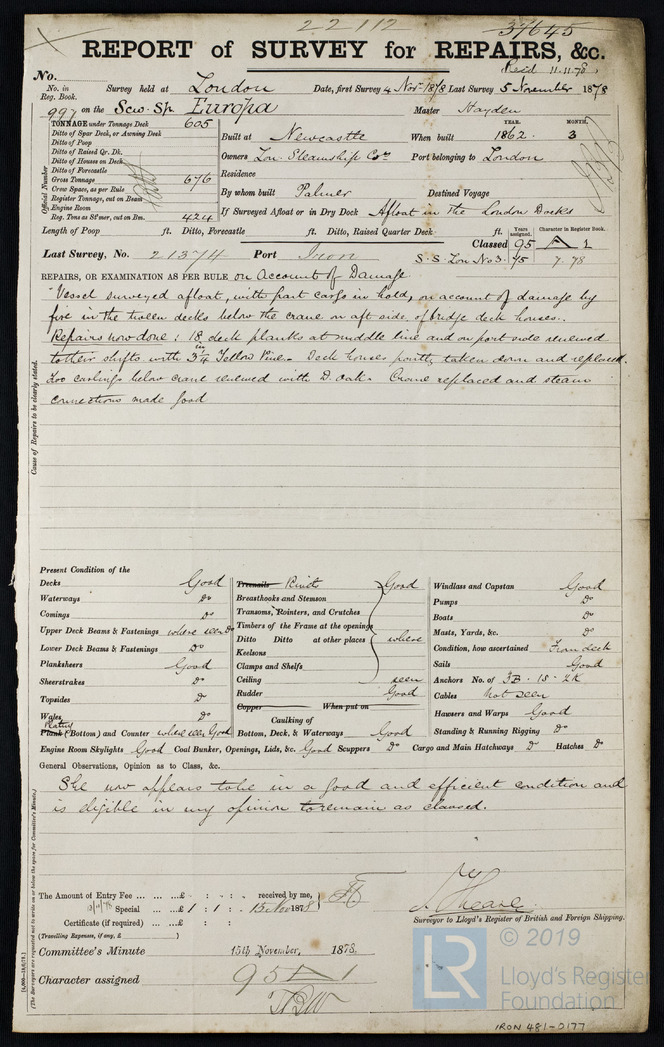 22112
37645
REPORT of SURVEY for REPAIRS, &c.
Recd 11.11.78.
No.
Survey held at London Date, first Survey 4 Novr 1878 Last Survey 5 November 1878
No. in Reg. Book.
997 on the Scw. Sp. Europa Master Hayden
TONNAGE under Tonnage Deck 605
Ditto of Spar Deck, or Awning Deck
Ditto of Poop
Ditto of Raised Qr. Dk.
Ditto of Houses on Deck
Ditto of Forecastle
Gross Tonnage 676
Crew Space, as per Rule
Register Tonnage, cut on Beam
Engine Room
Reg. Tons as St'mer, cut on Bm. 424
Official Number
Built at Newcastle When built 1862. 3
YEAR. MONTH.
Owners Lon. Steamship Coy Port belonging to London
Residence
By whom built Palmer Destined Voyage
If Surveyed Afloat or in Dry Dock Afloat in the London Docks
Length of Poop ft. Ditto, Forecastle ft. Ditto, Raised Quarter Deck ft.
Years assigned. Character in Register Book.
Classed 95 A 1
Last Survey, No. 21374 Port Iron S.S. Lon No 3. 75 7.78
REPAIRS, OR EXAMINATION AS PER RULE on Account of Damage
Vessel surveyed afloat, with part cargo in hold, on account of damage by
fire in the tween decks below the crane on aft side of bridge deck houses.
Repairs now done: 18 deck planks at middle line and on port side renewed
to their shifts with 3¼ in Yellow Pine. Deck houses partly taken down and replaced.
Two carlings below crane renewed with D. oak. Crane replaced and steam
connections made good
Cause of Repairs to be clearly stated.
Present Condition of the
Decks Good
Waterways Do
Comings Do
Upper Deck Beams & Fastenings where seen Do
Lower Deck Beams & Fastenings Do
Planksheers Good
Sheerstrakes Do
Topsides D
Wales Do
Plating
Plank (Bottom) and Counter where seen Good
Treenails Rivets Good
Breasthooks and Stemson
Transoms, Pointers, and Crutches
Timbers of the Frame at the openings
Ditto Ditto at other places where
Keelsons
Clamps and Shelfs
Ceiling seen
Rudder Good
Copper When put on
Caulking of
Bottom, Deck, & Waterways Good
Windlass and Capstan Good
Pumps Do
Boats Do
Masts, Yards, &c. Do
Condition, how ascertained From deck
Sails Good
Anchors No. of 3B. 1S. 2K
Cables Not seen
Hawsers and Warps Good
Standing & Running Rigging Do
Engine Room Skylights Good Coal Bunker, Openings, Lids, &c. Good Scuppers Do Cargo and Main Hatchways D Hatches Do
General Observations, Opinion as to Class, &c.
She now appears to be in a good and efficient condition and
is eligible in my opinion to remain as classed.
The Amount of Entry Fee ... £ : : received by me,
Special ... £ 1 : 1 : 13 Nov 1878
Certificate (if required) ... £ : :
(Travelling Expenses, if any, £ )
Surveyor to Lloyd's Register of British and Foreign Shipping.
Committee's Minute 15th November, 1878.
Character assigned 95 A 1
(The Surveyors are requested not to write on or below the space for Committee's Minute.)
LR
© 2019
Lloyd's Register
Foundation
IRON 481-0177